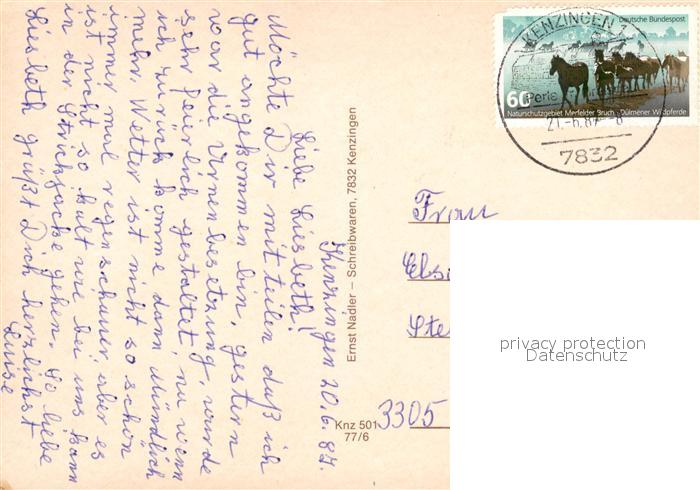 Kenzingen 20.6.87.
Liebe Liesbeth!
Möchte Dir mitteilen daß ich
gut angekommen bin, gestern
war die Urnenbesetzung, wurde
sehr feierlich gestaltet, na wenn
ich zurück komme dann Mündlich
mehr. Wetter ist nicht so schön
immer mal regenschauer aber es
ist nicht so kalt wie bei uns kann
in der Strickjacke gehen. So liebe
Liesbeth grüßt Dich herzlichst
Luise
Ernst Nadler – Schreibwaren, 7832 Kenzingen
Knz 501
77/6
Deutsche Bundespost
60
Naturschutzgebiet Merfelder Bruch · Dülmener Wildpferde
KENZINGEN 1
Perle
21.-6.87-8
7832
Frau
3305
privacy protection
Datenschutz